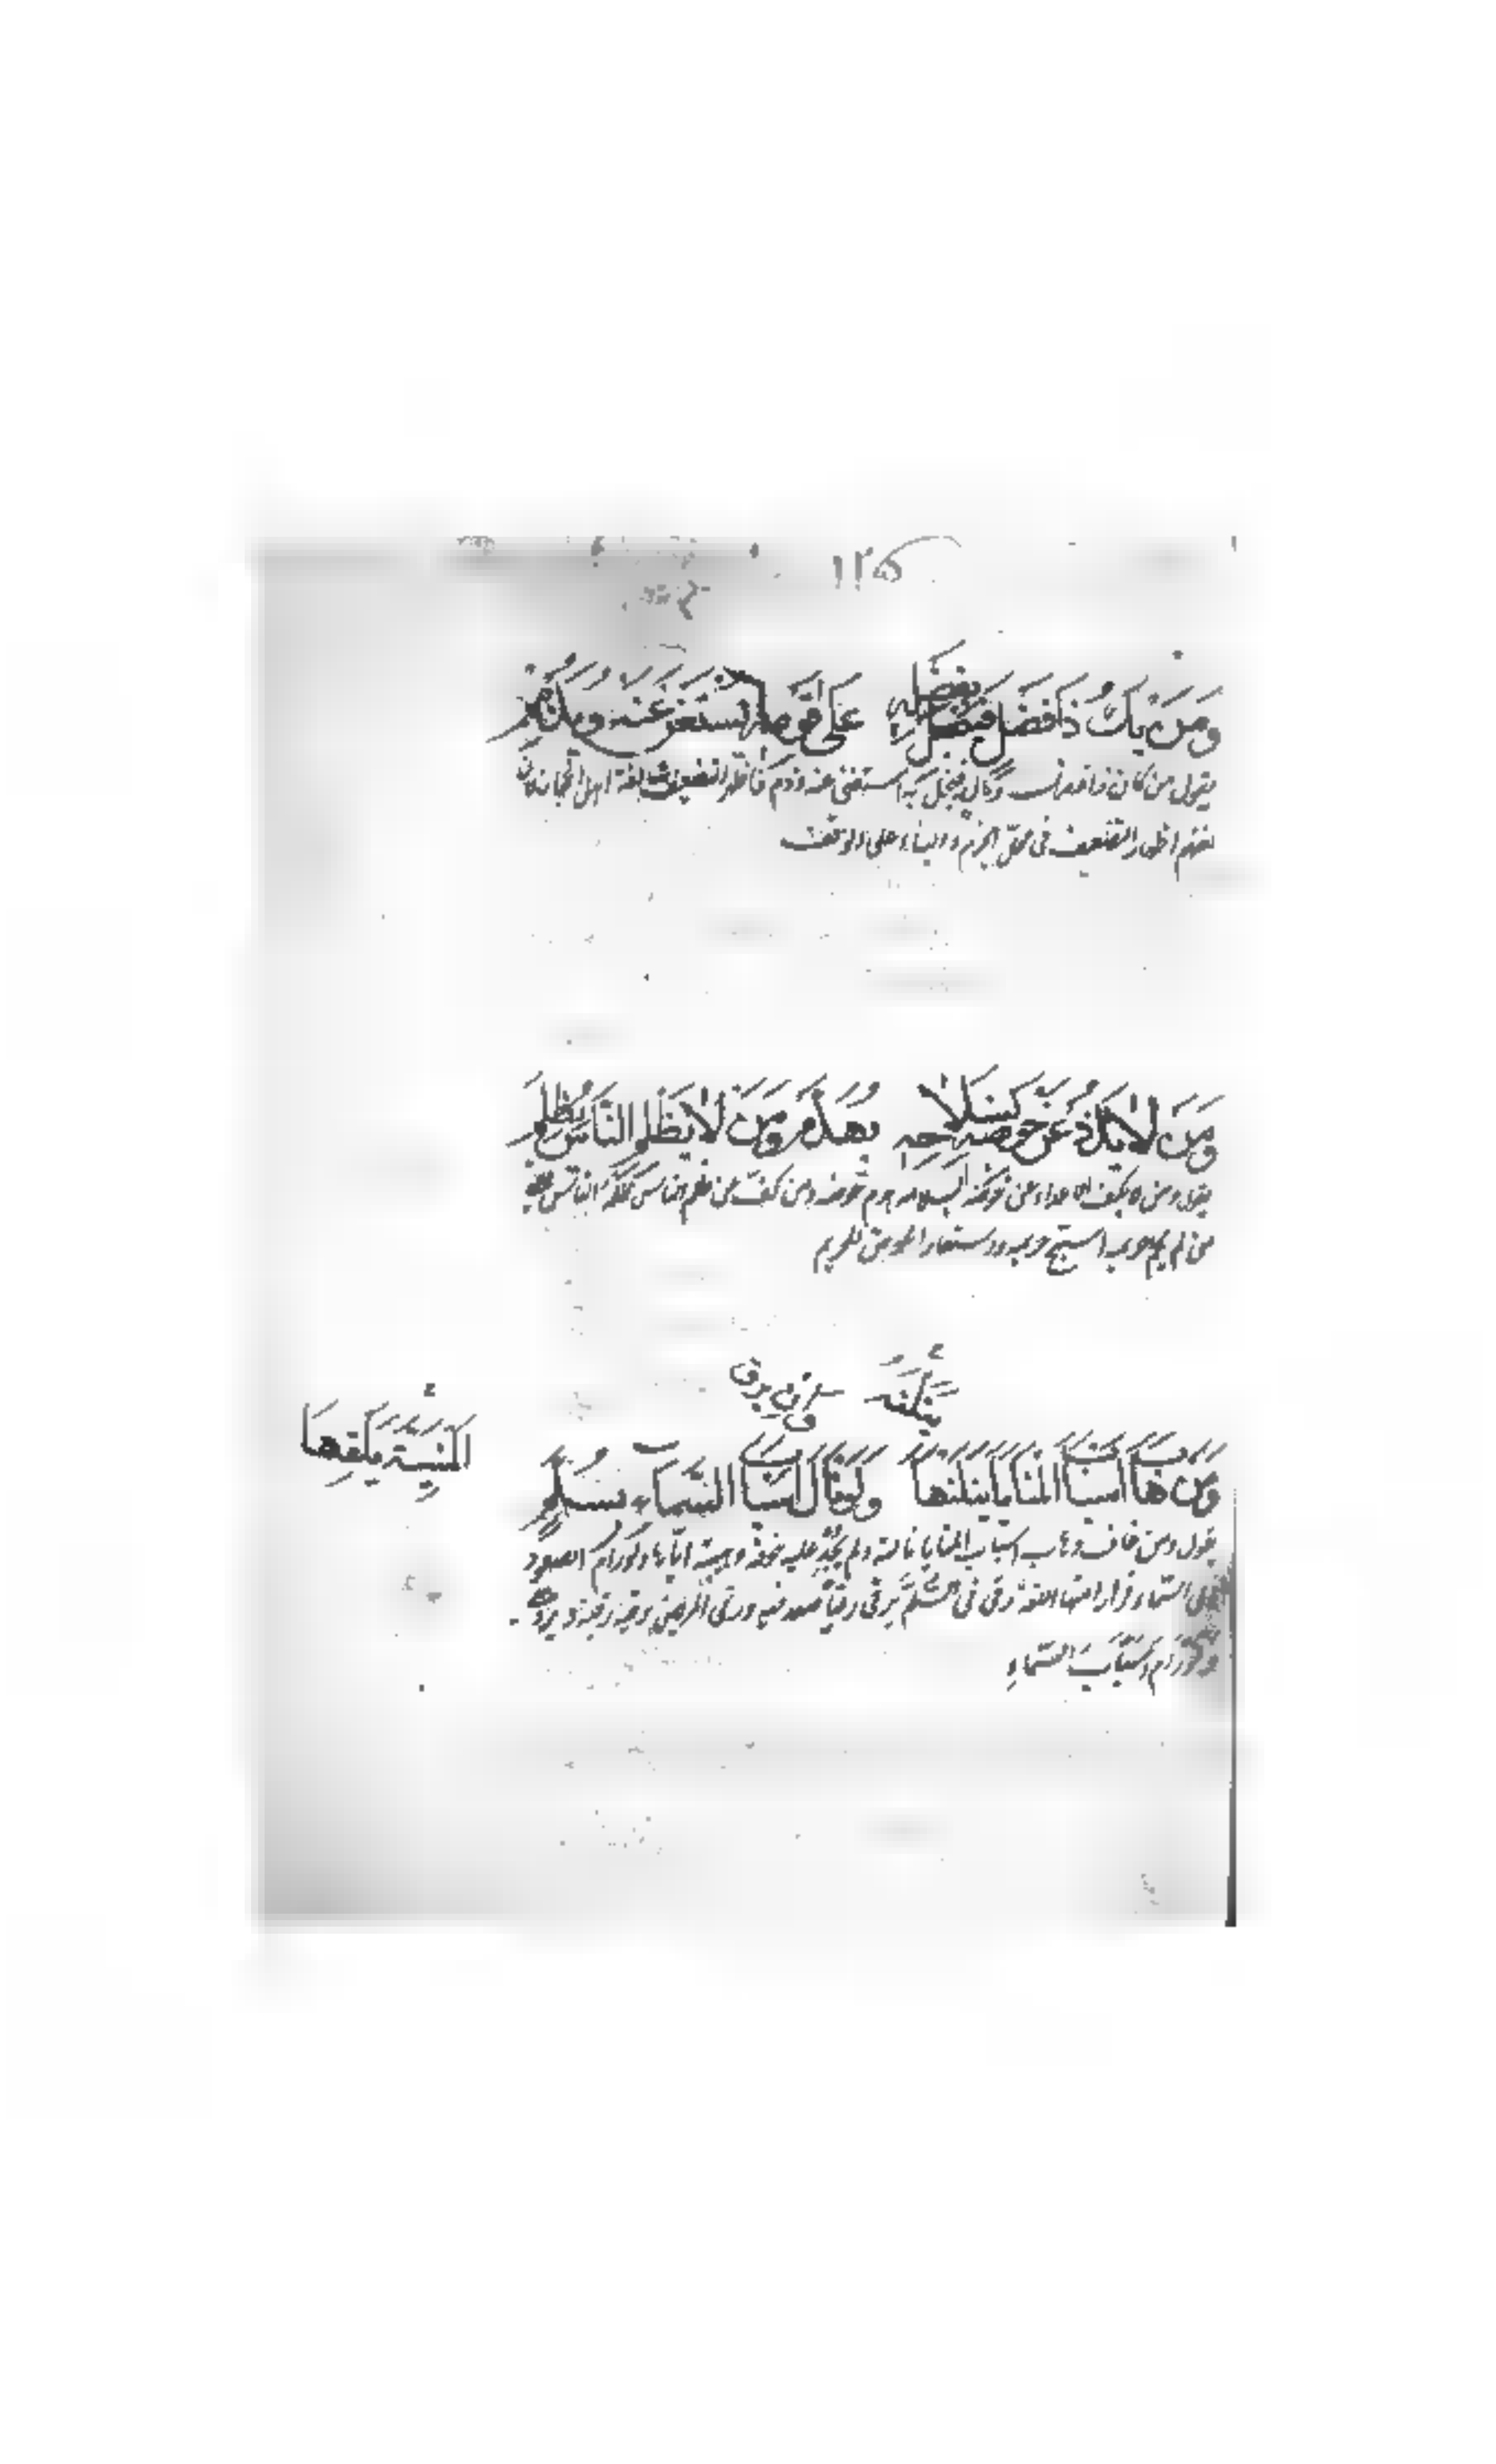 ١٢٥
وَمَنْ يَكُ ذَا فَضْلٍ فَيَبْخَلْ بِفَضْلِهِ عَلَى قَوْمِهِ يُسْتَغْنَ عَنْهُ وَيُذْمَمِ
يقول من كان ذا فضل ومال فيبخل به استغنى عنه وذم فاظهر التضعيف لغة اهل الحجاز لان
لغتهم اظهار التضعيف فى محل الجزم والبناء على الوقف
وَمَنْ لَا يَذُدْ عَنْ حَوْضِهِ بِسِلَاحِهِ يُهَدَّمْ وَمَنْ لَا يَظْلِمِ النَّاسَ يُظْلَمِ
يقول ومن لا يكف اعداءه عن حوضه بسلاحه هدم حوضه ومن كف عن ظلم الناس ظلمه الناس
من لم يحم حريمه استبيح حريمه واستعار الحوض للحريم
يَنَلْنَهُ
وان يرق
وَمَنْ هَابَ أَسْبَابَ الْمَنَايَا يَنَلْنَهَا وَلَوْ نَالَ أَسْبَابَ السَّمَاءِ بِسُلَّمِ
الْمَنِيَّةِ يَلْقَهَا
يقول ومن خاف وهاب اسباب المنايا نالته ولم يجد عليه خوفه وهيبته اياها ولو رام الصعود
الى السماء فرارا منها رقى فى السلم يرقى رقيا صعد فيه ورقى المريض يرقيه رقية
ولو رام اسباب السماء